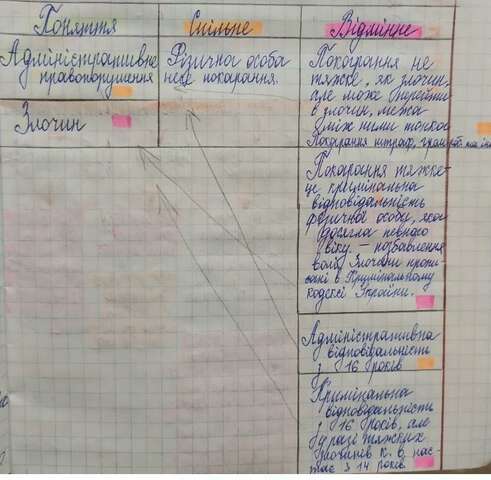 Поняття
Спільне
Відмінне
Адміністративне
правопорушення
Фізична особа
несе покарання.
Покарання не
тяжке, як злочин,
але може перейти
в злочин, межа
між ними тонка
Покарання штраф,
Злочин
Покарання тяжке-
це кримінальна
відповідальність
фізичної особи, яка
досягла певного
віку. – позбавлення
волі. Злочини пропи-
сані в Кримінальному
кодексі України.
Адміністративна
відповідальність
з 16 років
Кримінальна
відповідальність
з 16 років, але
у разі тяжких
злочинів к. в. нас-
тає з 14 років